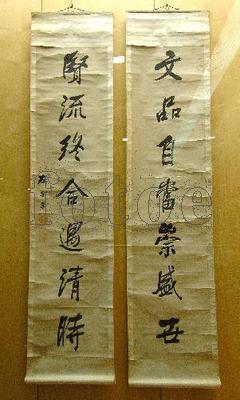 文品自當崇盛世
賢流終合遇清時
Fotoe